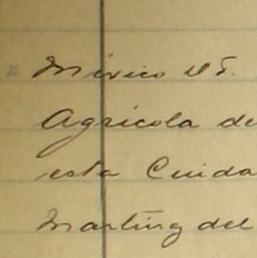 Mexico D.F.
Agricola de
esta Cuida
Martinz del